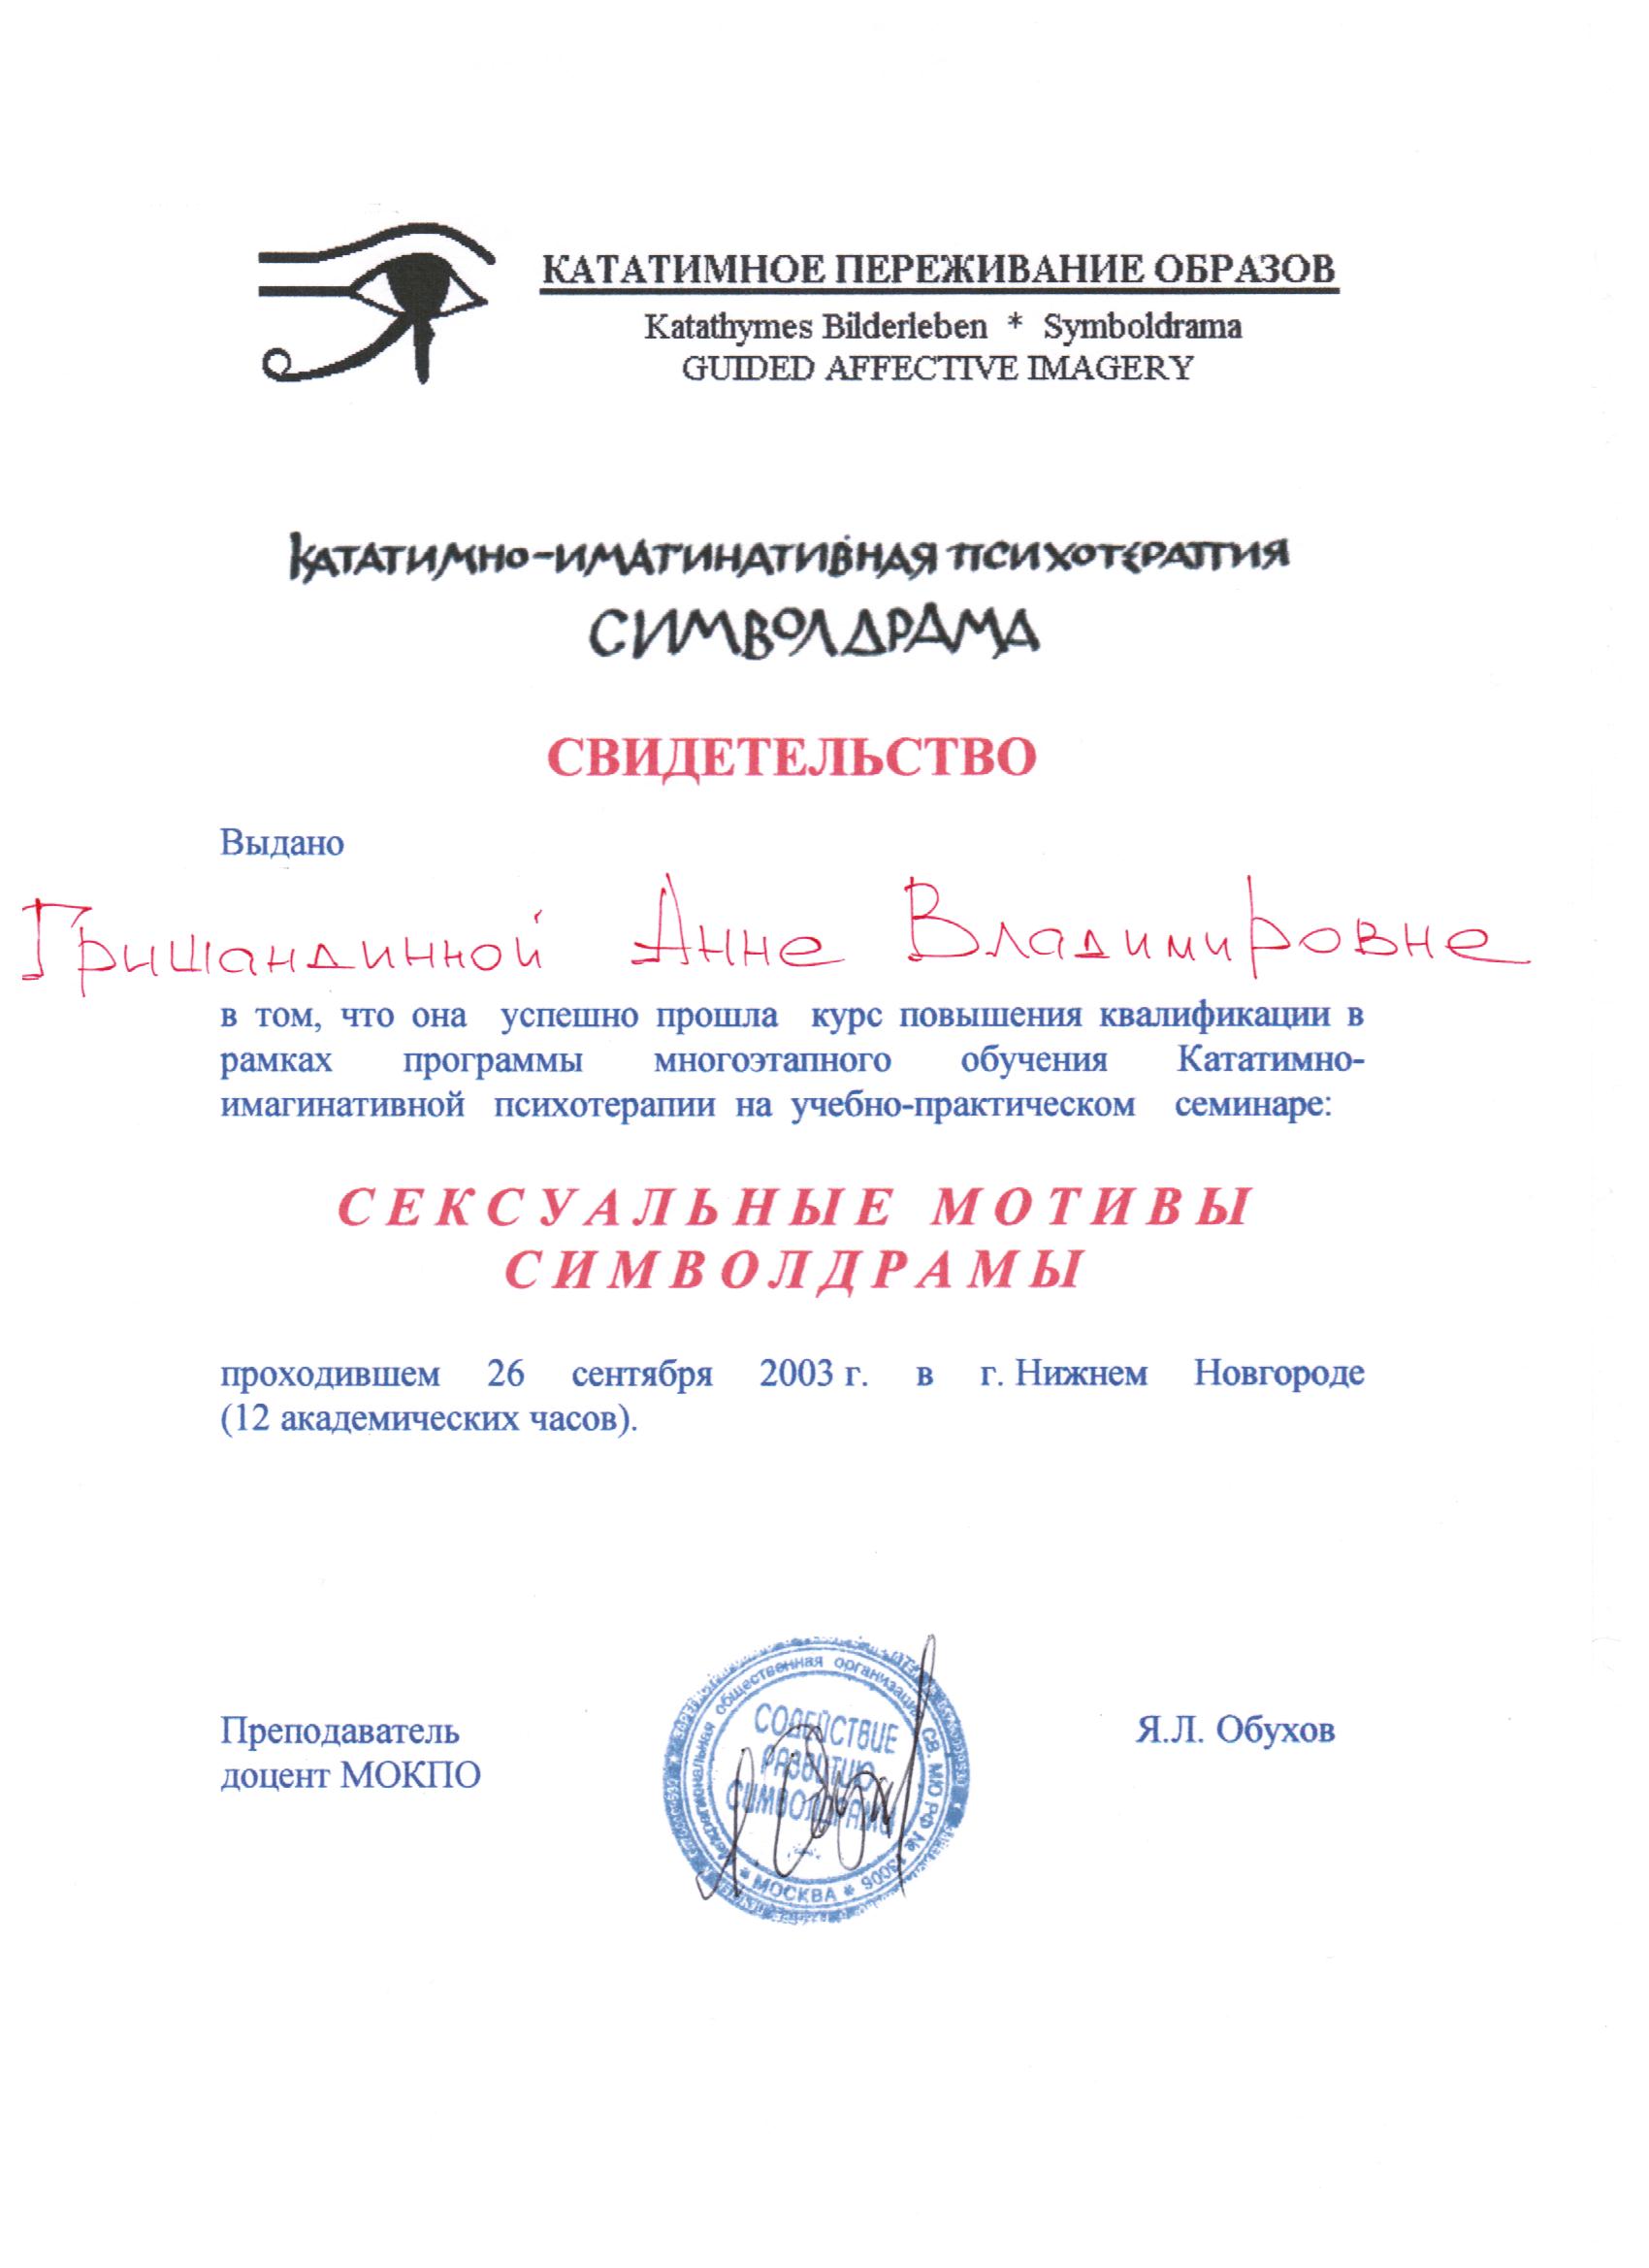 КАТАТИМНОЕ ПЕРЕЖИВАНИЕ ОБРАЗОВ
Katathymes Bilderleben * Symboldrama
GUIDED AFFECTIVE IMAGERY
КАТАТИМНО-ИМАГИНАТИВНАЯ ПСИХОТЕРАПИЯ
СИМВОЛДРАМА
СВИДЕТЕЛЬСТВО
Выдано
Гришандинной Анне Владимировне
в том, что она успешно прошла курс повышения квалификации в
рамках программы многоэтапного обучения Кататимно-
имагинативной психотерапии на учебно-практическом семинаре:
СЕКСУАЛЬНЫЕ МОТИВЫ
СИМВОЛДРАМЫ
проходившем 26 сентября 2003 г. в г. Нижнем Новгороде
(12 академических часов).
Преподаватель
доцент МОКПО
Межрегиональная общественная организация СВ. МЮ РФ № 13006
* МОСКВА *
СОДЕЙСТВИЕ
РАЗВИТИЮ
СИМВОЛДРАМЫ
Я.Л. Обухов